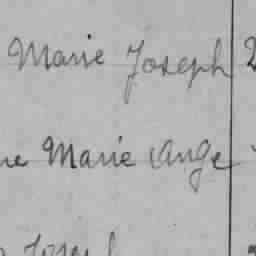 Marie Joseph 2
ne Marie Ange
Joseph